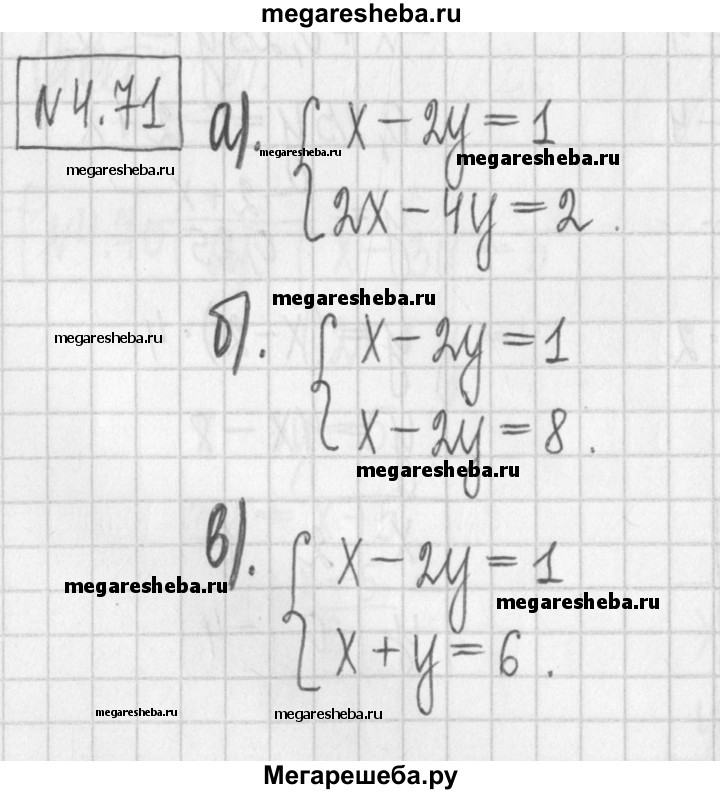 megaresheba.ru
N 4.71
а). { x - 2y = 1
megaresheba.ru
megaresheba.ru
megaresheba.ru
2x - 4y = 2.
megaresheba.ru
б). { x - 2y = 1
megaresheba.ru
x - 2y = 8.
megaresheba.ru
в). { x - 2y = 1
megaresheba.ru
megaresheba.ru
x + y = 6.
megaresheba.ru
megaresheba.ru
Мегарешеба.ру